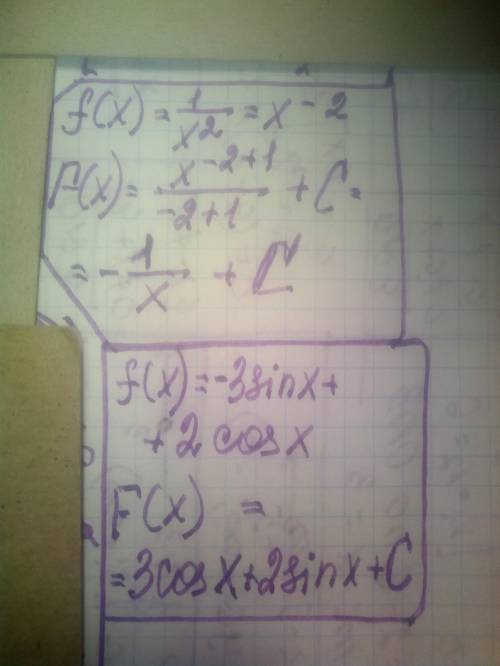 f(x) = 1/x² = x⁻²
F(x) = x⁻²⁺¹/-2+1 + C =
= - 1/x + C
f(x) = -3 sin x +
+ 2 cos x
F(x) =
= 3 cos x + 2 sin x + C